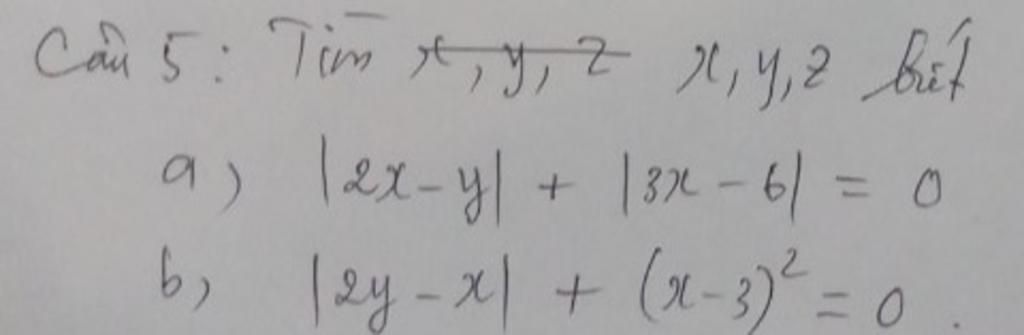 Câu 5 : Tìm x, y, z x, y, z biết
a) |2x - y| + |3x - 6| = 0
b) |2y - x| + (x - 3)² = 0.